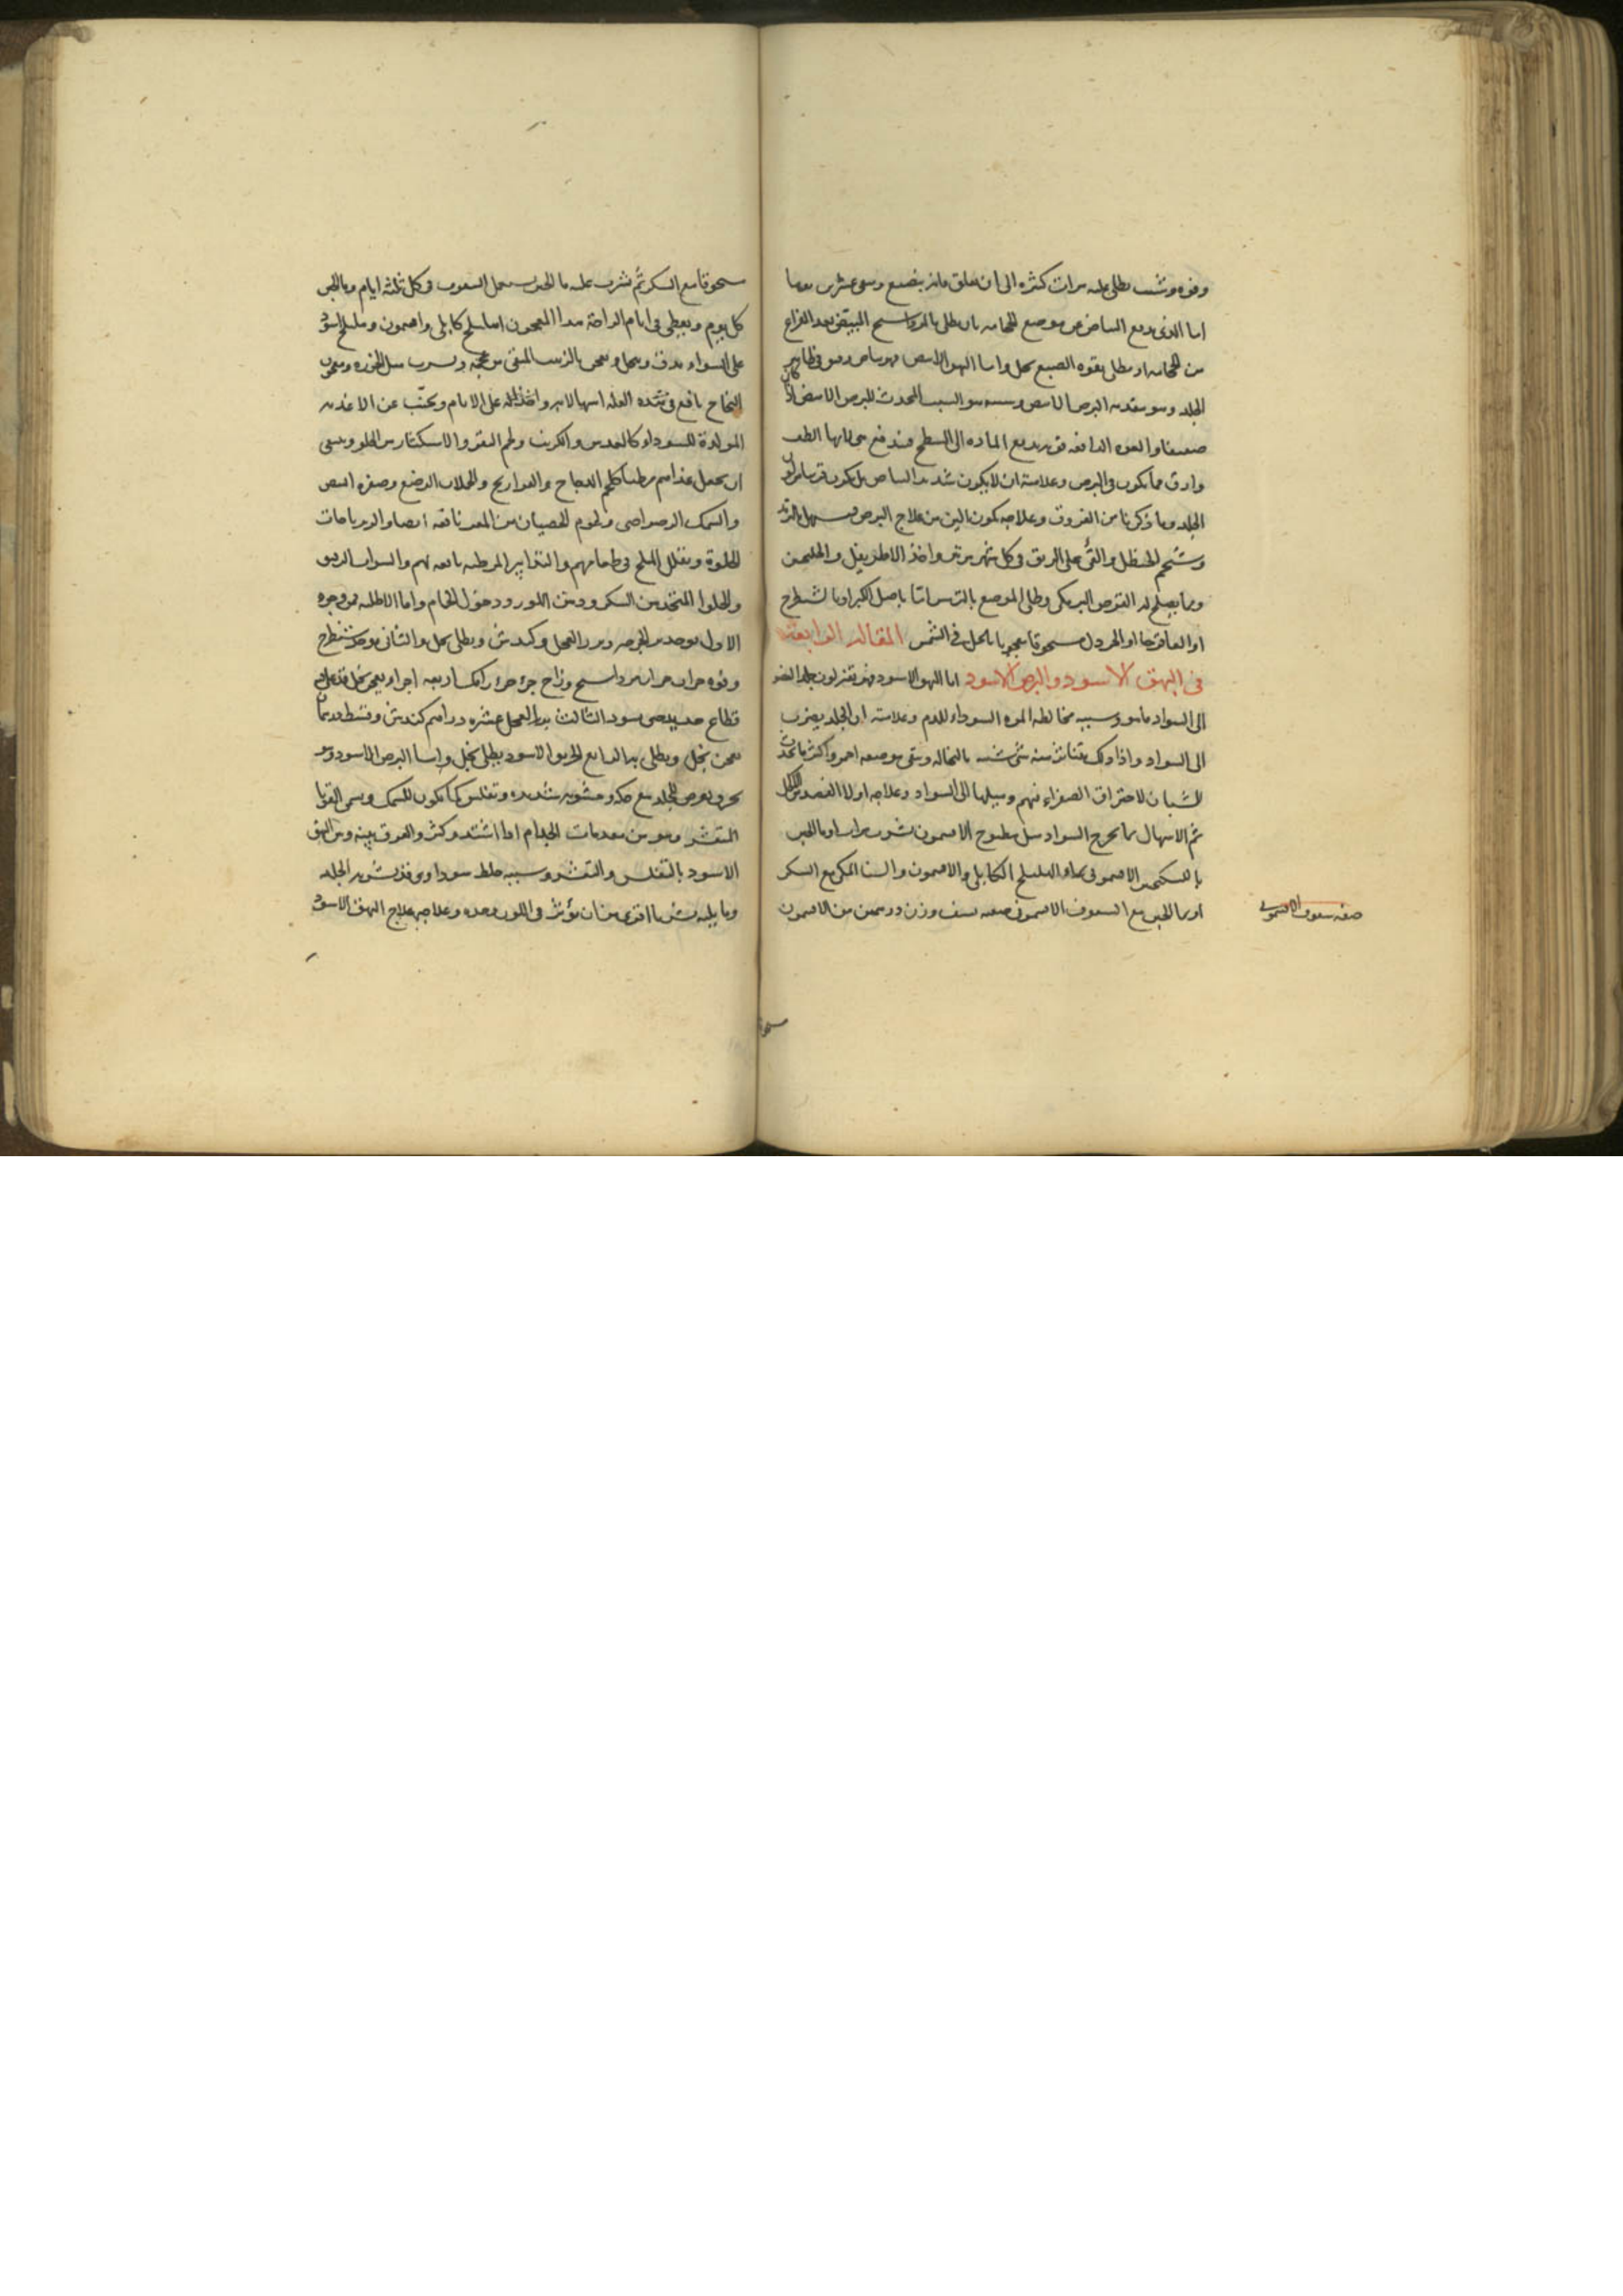 وفوه وشب يطلى عليه مرات كثيرة الى ان يعلق فانه يصبغ ويبقى عشرين يوما
اما الذى يدفع البياض من موضع الحجامه بان يطلى بالمرداسنج المبيض بعد الفراغ
من الحجامه او يطلى بفوه الصبغ بخل واما البهق الابيض فهو بياض دقيق فى ظاهر
الجلد وهو مقدمه البرص الابيض وسببه هو السبب المحدث للبرص الابيض اذا كان
ضعيفا والقوه الدافعه قويه تدفع الماده الى السطح فيندفع
وارق مما يكون فى البرص وعلامته ان لا يكون شديد البياض بل يكون قريبا من لون
الجلد وما ذكرنا من الفروق وعلاجه يكون الين من علاج البرص يسهل بالتربد
وشحم الحنظل والقئ على الريق فى كل شهر مرتين واخذ الاطريفل والجلنجبين
ومما يصلح له القرص البرمكى وطلى الموضع بالترمس او باصل الكبر او بالشيطرج
او العاقرقرحا او الخردل مسحوقا معجونا بالخل فى الشمس المقالة الرابعة
فى البهق الاسود والبرص الاسود اما البهق الاسود فهو تغير لون جلد العضو
الى السواد ما هو وسببه مخالطه المره السوداء للدم وعلامته ان الجلد يضرب
الى السواد واذا دلك يتناثر منه شئ شبيه بالنخاله ويبقى موضعه احمر واكثر ما يحدث
للشبان لاحتراق الصفراء فيهم وميلها الى السواد وعلاجه اولا الفصد من الاكحل
ثم الاسهال بما يخرج السواد مثل مطبوخ الافتيمون يشرب مرات او ماء الجبن
بالسكنجبين الافتيمونى او الهليلج الكابلى والافتيمون والسنا المكى مع السكر
او ماء الجبن مع السفوف الافتيمونى صفته يسف وزن درهمين من الافتيمون
صفه سفوف الافتيمونى
مسحوقا
مسحوقا مع السكر ثم يشرب عليه ماء الجبن يستعمل السفوف فى كل ثلثه ايام وماء الجبن
كل يوم ويعطى فى ايام الراحة هذا المعجون اهليلج كابلى وافتيمون وهليلج اسود
على السواء يدق وينخل ويعجن بالزبيب المنقى من عجمه ويشرب مثل الجوزه ومعجون
النجاح نافع فى هذه العله اسهالا به واخذا له على الايام ويجتنب عن الاغذيه
المولدة للسوداء كالعدس والكرنب ولحم البقر والاستكثار من الخل وينبغى
ان يجعل غذاءهم مرطبا كلحم الدجاج والفراريج والحملان الرضع وصفره البيض
والسمك الرضراضى ولحوم الخصيان من المعز نافعه ايضا والزيرباجات
الحلوة ويقلل الملح فى طعامهم والتدابير المرطبه نافعه لهم والشراب الرقيق
والحلوا المتخذ من السكر ودهن اللوز ودخول الحمام واما الاطليه فمن وجوه
الاول يوخذ بزر الجرجير وبزر الفجل وكندش ويطلى بخل والثانى يوخذ شيطرج
وفوه جزءان جزءان مرداسنج وزاج جزء جزء اربعه اجزاء يعجن بخل
قطاع حديد حتى يسود الثالث بزر الفجل عشره دراهم كندش وقسط درهمان
يعجن بخل ويطلى به الرابع الخربق الاسود يطلى بخل واما البرص الاسود وهو
تحرق يعرض للجلد مع حكه وخشونه شديده وتفلس كما يكون للسمك ويسمى القوبا
المتقشر وهو من مقدمات الجذام اذا اشتد وكثر والفرق بينه وبين البهق
الاسود بالتفلس والتقشر وسببه خلط سوداوى قد تشربه الجلد
وما يليه شربا اقوى من ان يؤثر فى اللون وحده وعلاجه علاج البهق الاسود